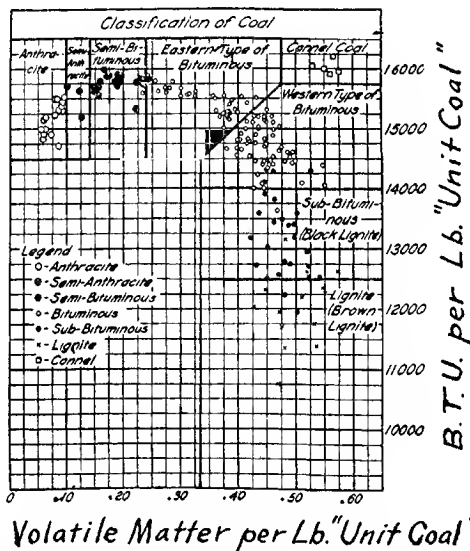 Classification of Coal
Anthra-
cite
Semi-
Anth-
racite
Semi-Bi-
tuminous
Eastern-Type of
Bituminous
Cannel Coal
Western Type of
Bituminous
Sub-Bitumi-
nous
(Black Lignite)
Lignite
(Brown-
Lignite)
Legend
o-Anthracite
-Semi-Anthracite
-Semi-Bituminous
o-Bituminous
-Sub-Bituminous
x-Lignite
□-Cannel
16000
15000
14000
13000
12000
11000
10000
B.T.U. per Lb. "Unit Coal"
0 .10 .20 .30 .40 .50 .60
Volatile Matter per Lb. "Unit Coal"